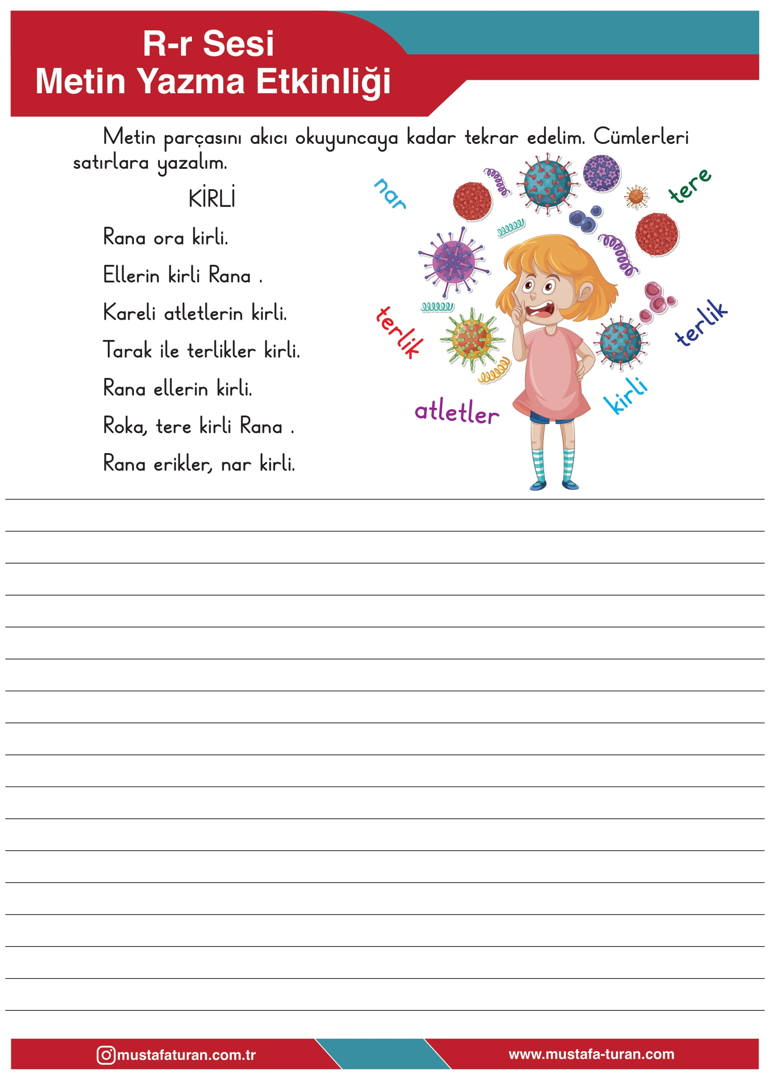 R-r Sesi
Metin Yazma Etkinliği
Metin parçasını akıcı okuyuncaya kadar tekrar edelim. Cümlerleri
satırlara yazalım.
KİRLİ
Rana ora kirli.
Ellerin kirli Rana .
Kareli atletlerin kirli.
Tarak ile terlikler kirli.
Rana ellerin kirli.
Roka, tere kirli Rana .
Rana erikler, nar kirli.
nar
tere
terlik
terlik
atletler
kirli
mustafaturan.com.tr
www.mustafa-turan.com